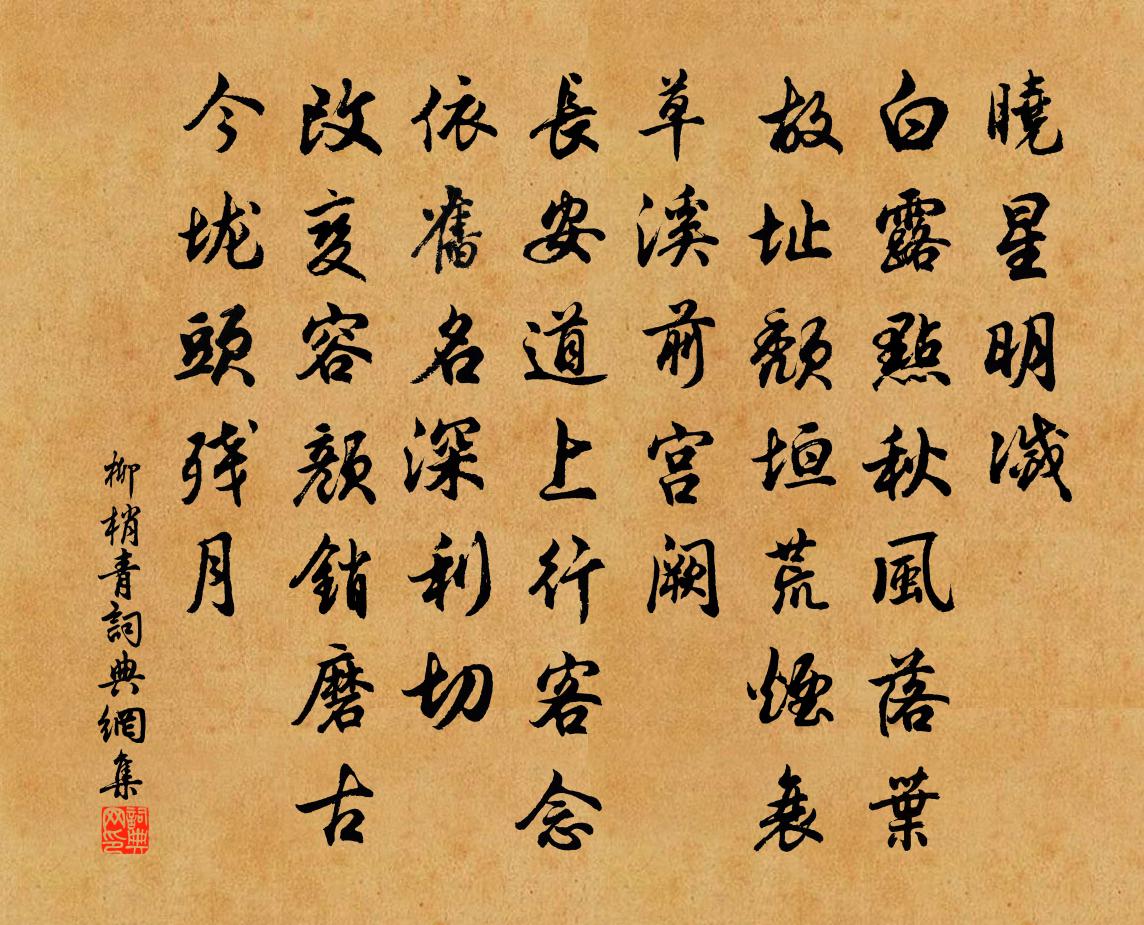 曉星明滅
白露點秋風落葉
故址頹垣荒煙衰
草溪前宮闕
長安道上行客念
依舊名深利切
改變容顏銷磨古
今垅頭残月
柳梢青詞典網集
詞典网印